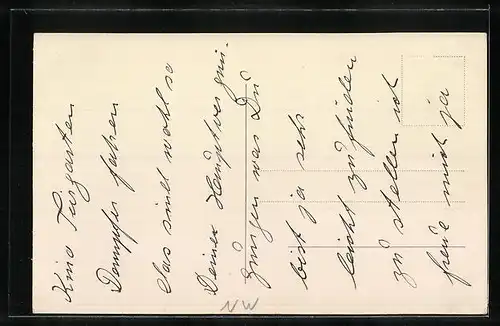 Kino Tiergarten
Dampfer fahren
das sind wohl so
Deine Hauptvergnü-
gungen was Du
bist ja sehr
leicht zufrieden
zu stellen ich
freue mich ja
NW